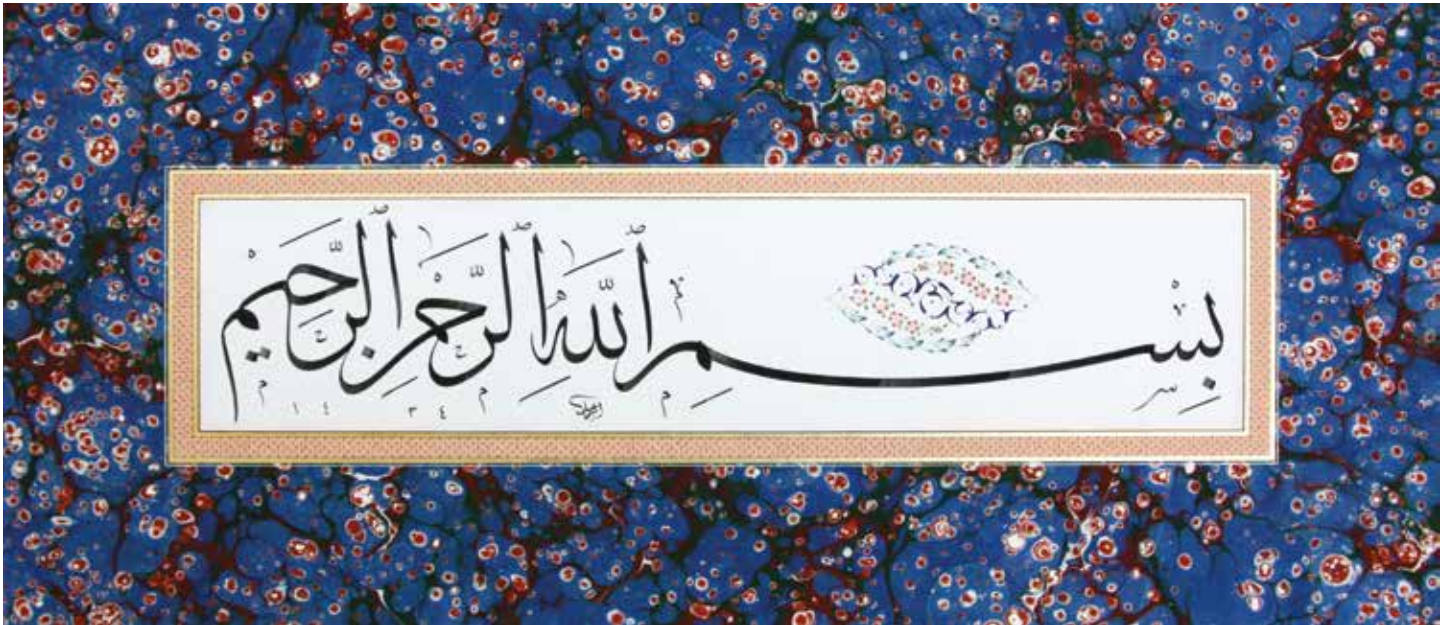 بِسْمِ اللّٰهِ الرَّحْمٰنِ الرَّحِيْمِ
١٤٣٤